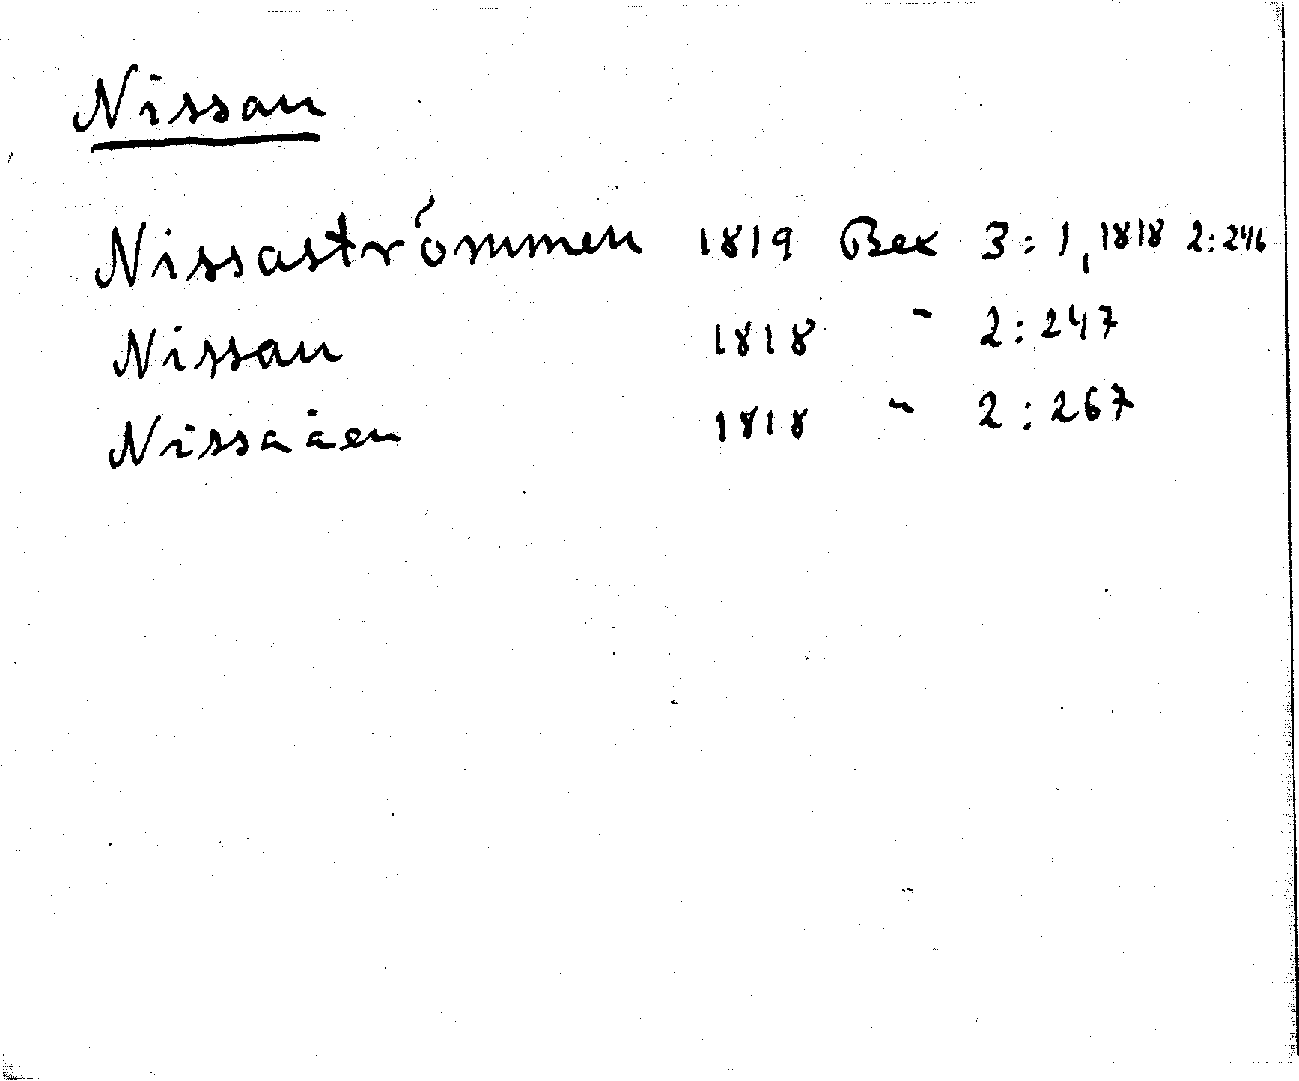 Nissan
Nissaströmmen 1819 Bex 3:1, 1818 2:246
Nissan 1818 " 2:247
Nissaåen 1818 " 2:267